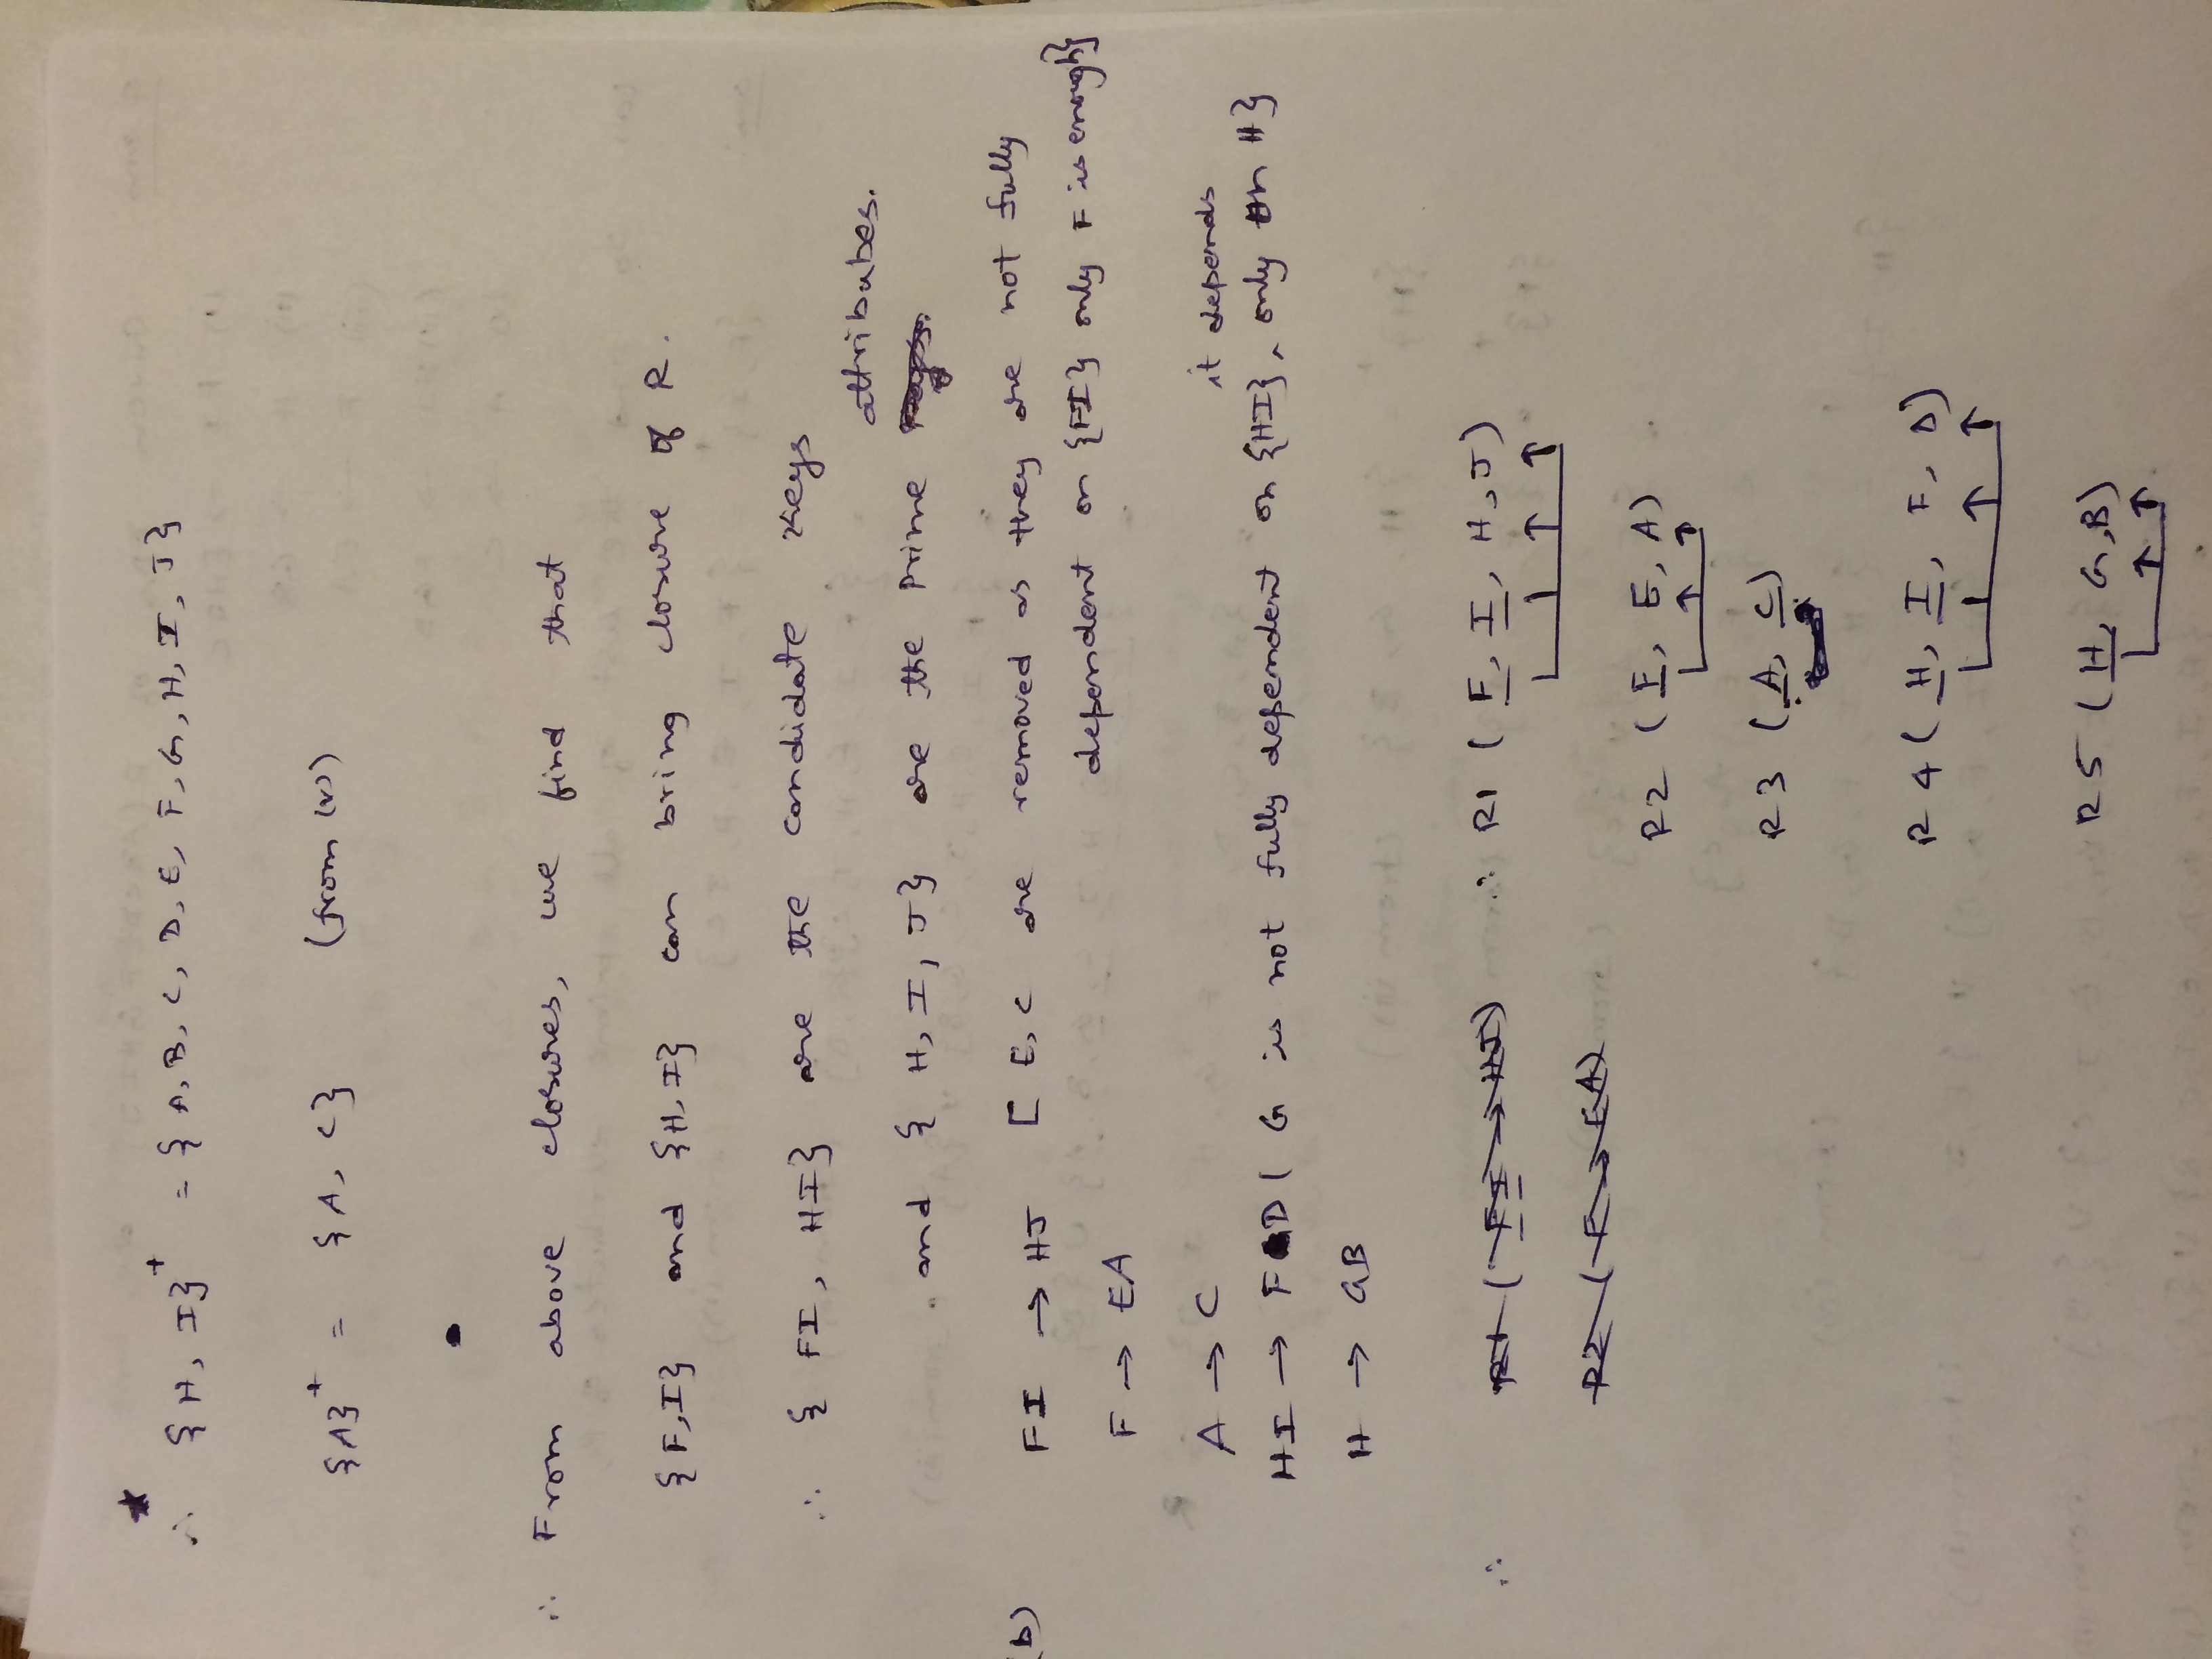 ∴ {H, I}⁺ = {A, B, C, D, E, F, G, H, I, J}
{A}⁺ = {A, C} (from (v))
∴ From above closures, we find that
{F, I} and {H, I} can bring closure of R.
∴ {FI, HI} are the candidate keys
attributes.
and {H, I, J} are the Prime
(b) FI → HJ [ E, C are removed as they are not fully
dependent on {FI} only F is enough}
F → EA
A → C
it depends
HI → F D ( G is not fully dependent on {HI}, only on H}
H → GB
∴ R1 ( FI → HJ) ∴ R1 ( F, I, H, J)
R2 ( F → EA)
R2 ( F, E, A)
R3 ( A, C)
R4 ( H, I, F, D)
R5 ( H, G, B)